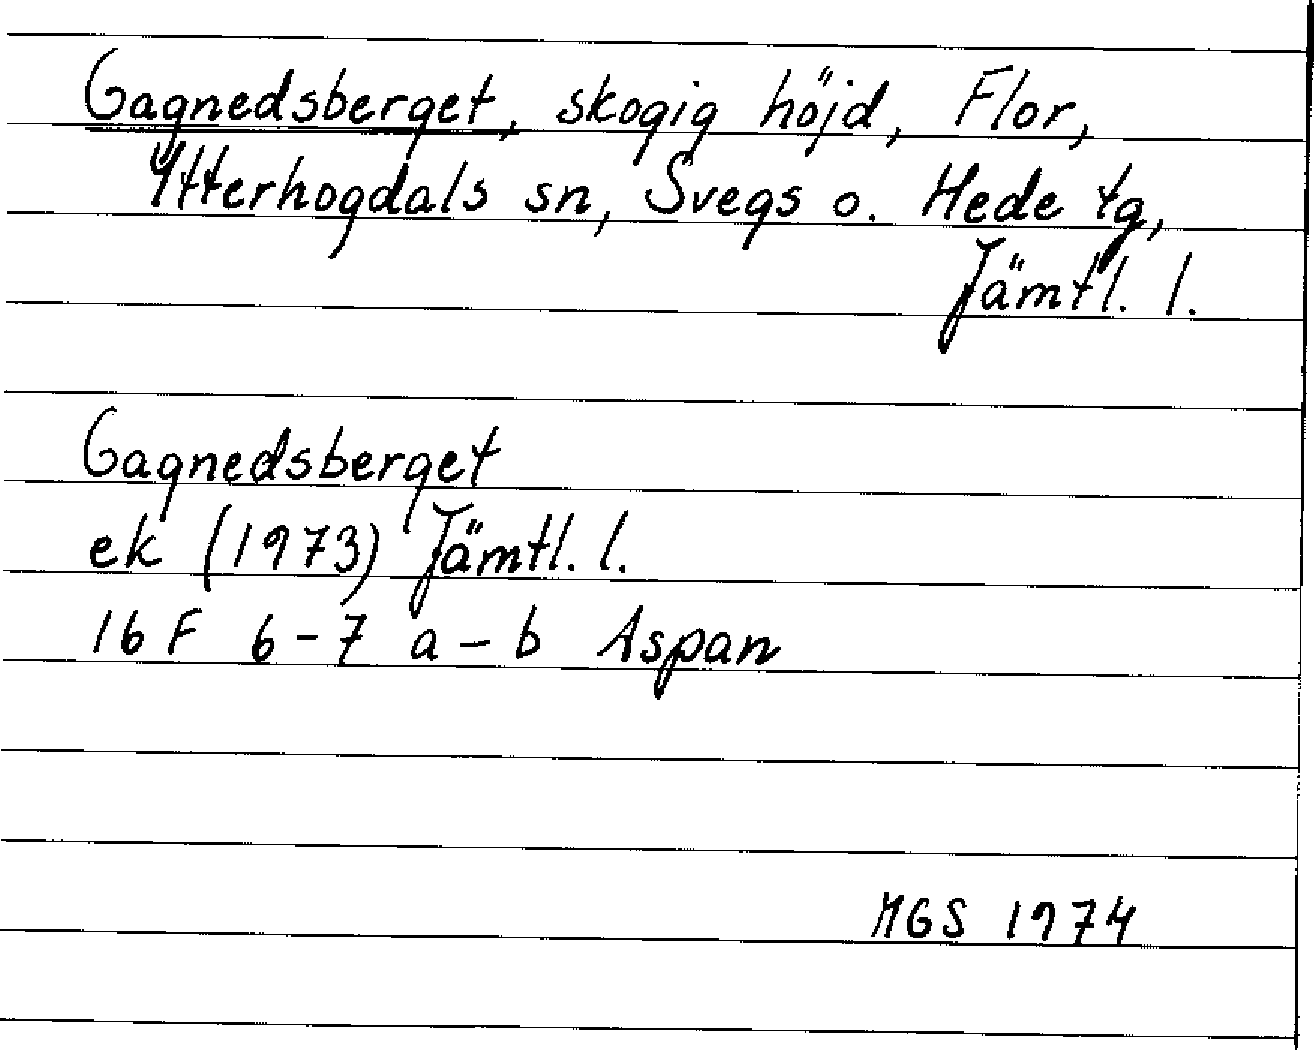 Gagnedsberget, skogig höjd, Flor,
Ytterhogdals sn, Svegs o. Hede tg,
Jämtl. l.
Gagnedsberget
ek (1973) Jämtl. l.
16 F 6-7 a-b Aspan
MGS 1974